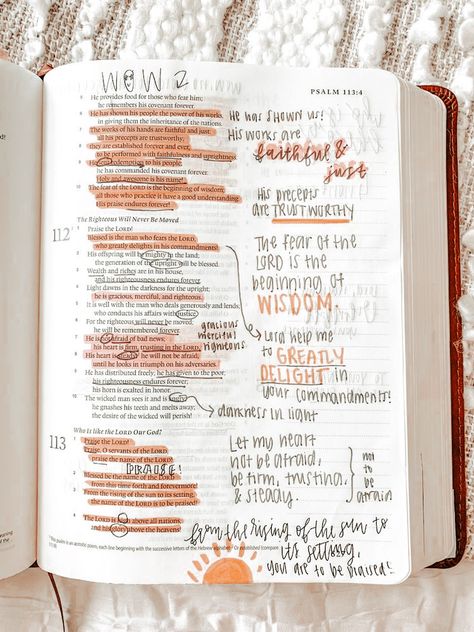 WOW
PSALM 113:4
5 He provides food for those who fear him;
he remembers his covenant forever.
6 He has shown his people the power of his works,
in giving them the inheritance of the nations.
7 The works of his hands are faithful and just;
all his precepts are trustworthy;
8 they are established forever and ever,
to be performed with faithfulness and uprightness.
9 He sent redemption to his people;
he has commanded his covenant forever.
Holy and awesome is his name!
10 The fear of the LORD is the beginning of wisdom;
all those who practice it have a good understanding.
His praise endures forever!
The Righteous Will Never Be Moved
112 Praise the LORD!
Blessed is the man who fears the LORD,
who greatly delights in his commandments!
2 His offspring will be mighty in the land;
the generation of the upright will be blessed.
3 Wealth and riches are in his house,
and his righteousness endures forever.
4 Light dawns in the darkness for the upright;
he is gracious, merciful, and righteous.
5 It is well with the man who deals generously and lends,
who conducts his affairs with justice.
6 For the righteous will never be moved;
he will be remembered forever.
7 He is not afraid of bad news;
his heart is firm, trusting in the LORD.
8 His heart is steady; he will not be afraid,
until he looks in triumph on his adversaries.
9 He has distributed freely; he has given to the poor;
his righteousness endures forever;
his horn is exalted in honor.
10 The wicked man sees it and is angry;
he gnashes his teeth and melts away;
the desire of the wicked will perish!
Who Is like the LORD Our God?
113 1 Praise the LORD!
Praise, O servants of the LORD,
praise the name of the LORD!
PRAISE!
2 Blessed be the name of the LORD
from this time forth and forevermore!
3 From the rising of the sun to its setting,
the name of the LORD is to be praised!
4 The LORD is high above all nations,
and his glory above the heavens!
This psalm is an acrostic poem, each line beginning with the successive letters of the Hebrew alphabet Or established (compare
He has shown us!
His works are
faithful &
just
His precepts
are TRUSTWORTHY
The fear of the
LORD is the
beginning of
WISDOM.
gracious
merciful
righteous
Lord help me
to GREATLY
DELIGHT in
your commandments!
darkness in light
Let my heart
not be afraid,
be firm, trusting,
& steady.
not
to
be
afraid
from the rising of the sun to
its setting,
you are to be praised!